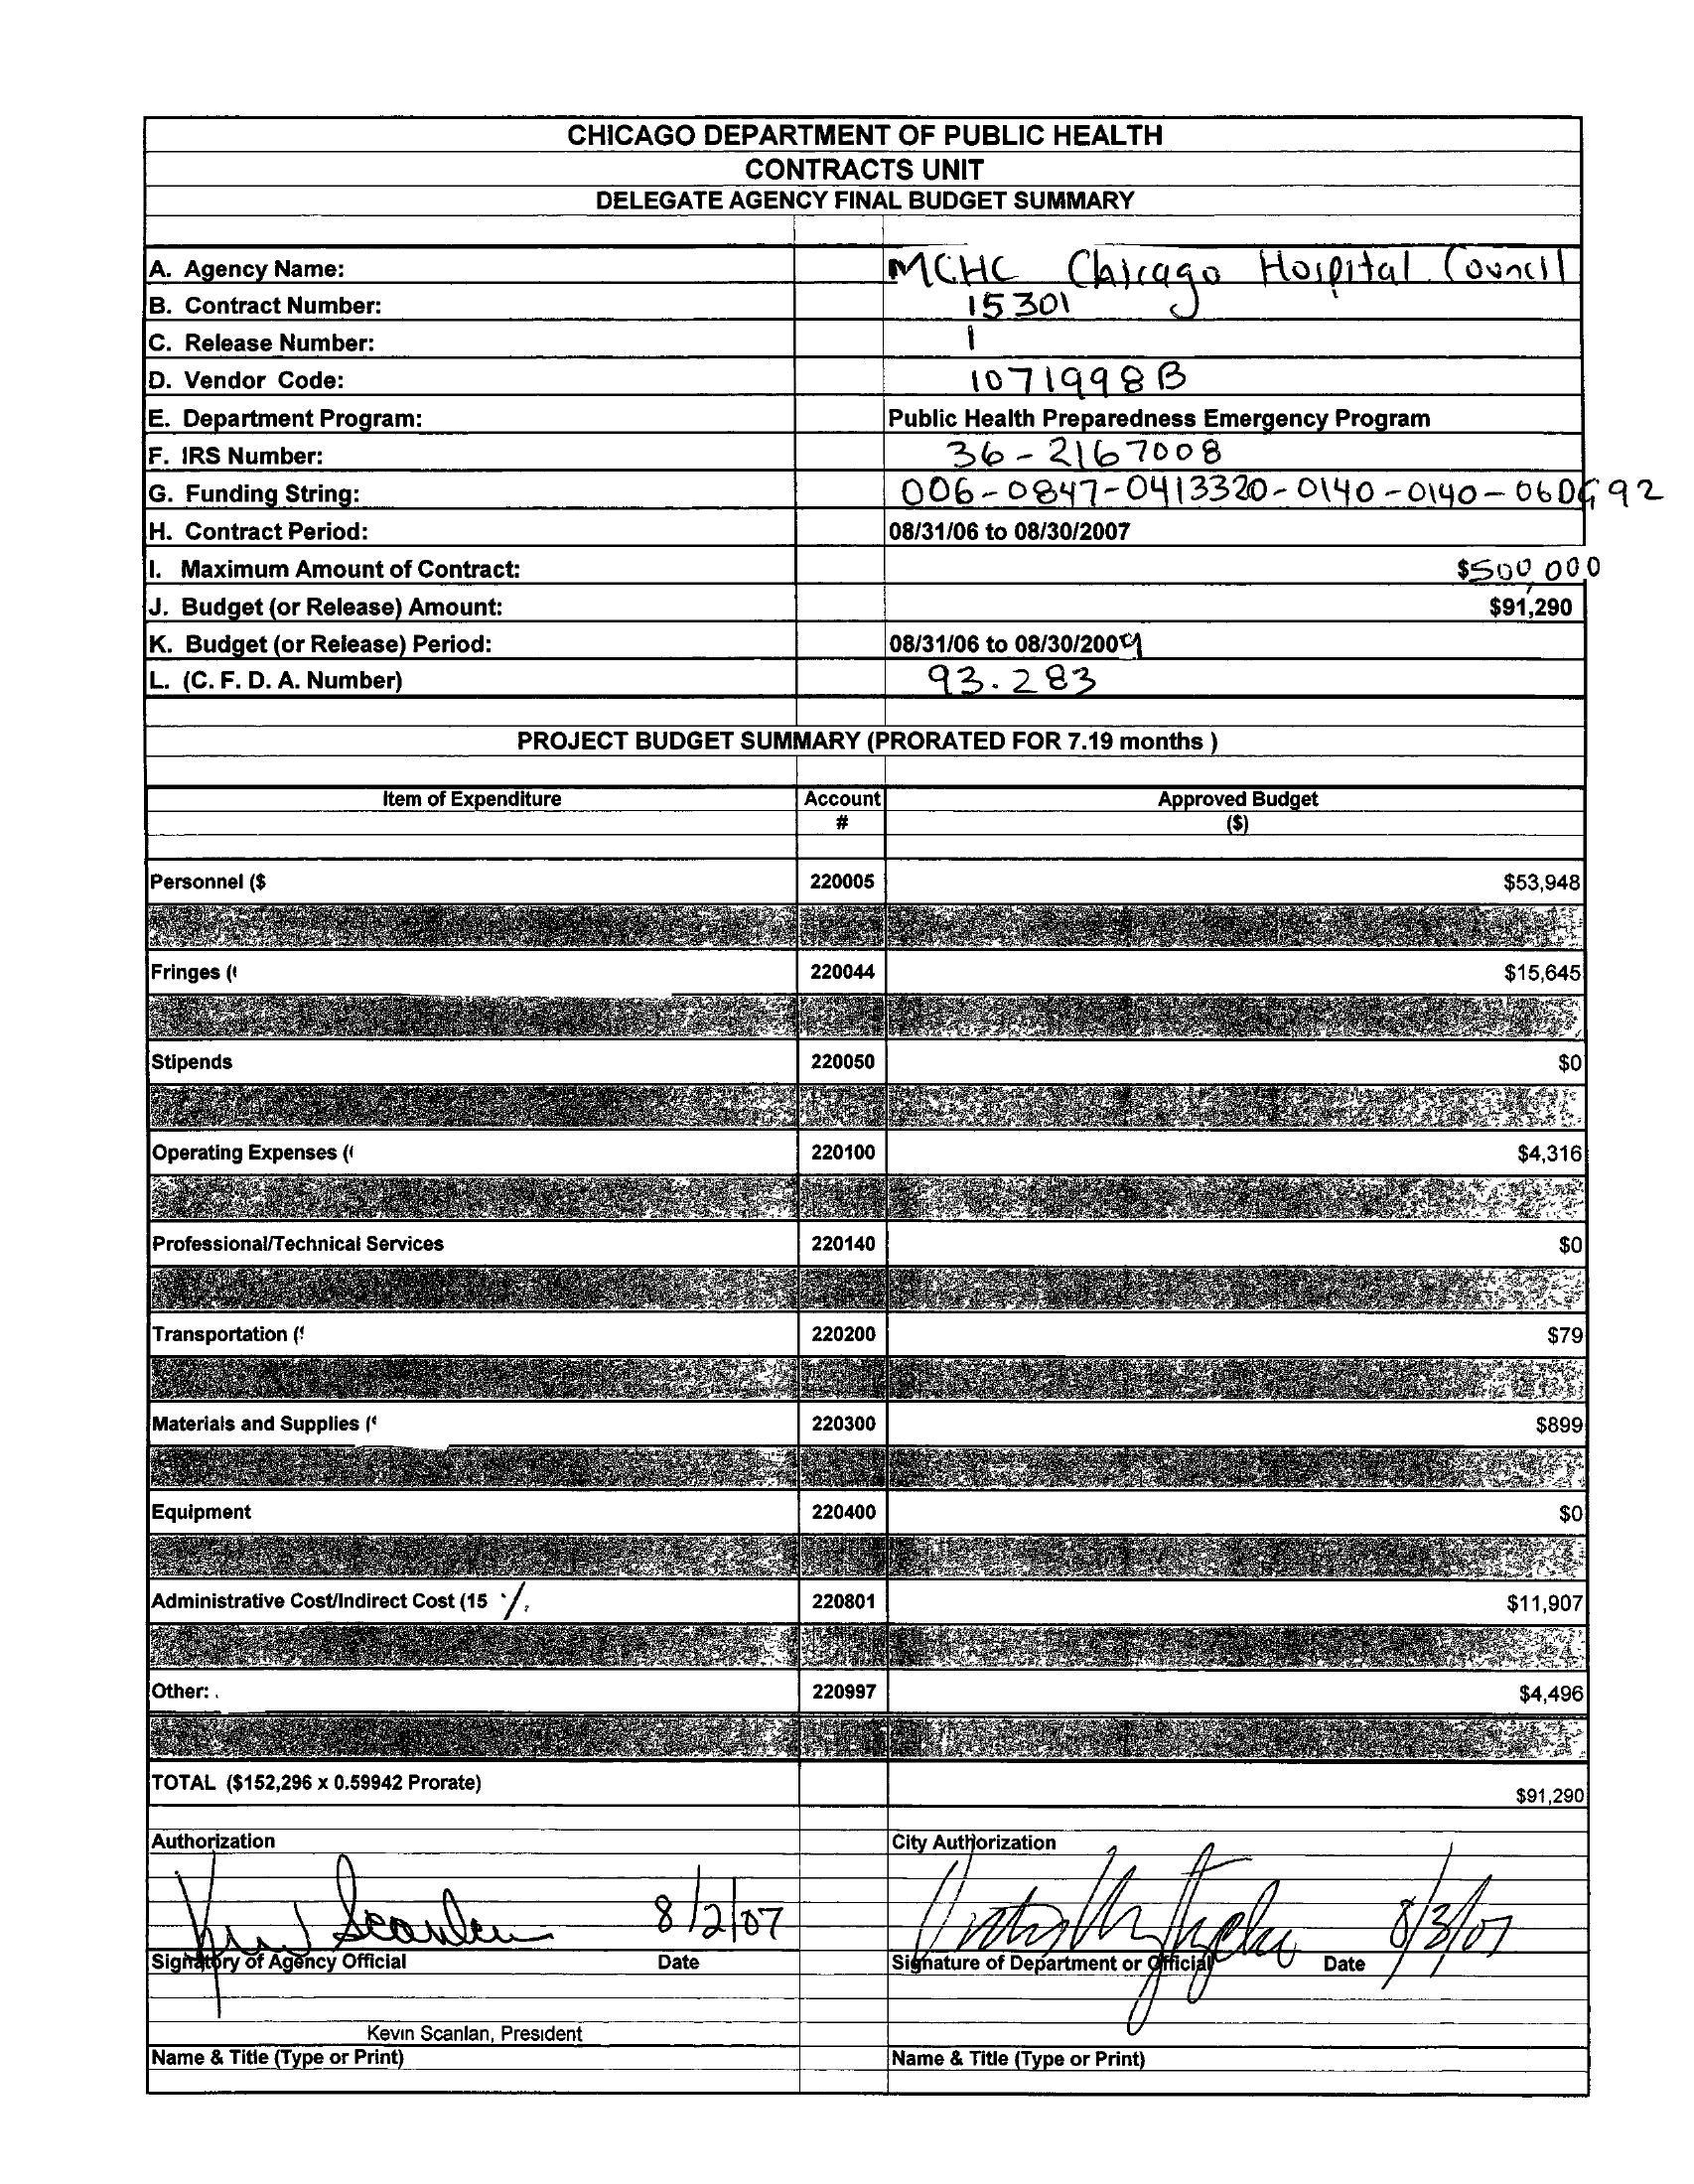 CHICAGO DEPARTMENT OF PUBLIC HEALTH
CONTRACTS UNIT
DELEGATE AGENCY FINAL BUDGET SUMMARY
A. Agency Name: MCHC Chicago Hospital Council
B. Contract Number: 15301
C. Release Number: 1
D. Vendor Code: 1071998B
E. Department Program: Public Health Preparedness Emergency Program
F. IRS Number: 36-2167008
G. Funding String: 006-0847-0413320-0140-0140-060G92
H. Contract Period: 08/31/06 to 08/30/2007
I. Maximum Amount of Contract: $500,000
J. Budget (or Release) Amount: $91,290
K. Budget (or Release) Period: 08/31/06 to 08/30/2009
L. (C. F. D. A. Number) 93.283
PROJECT BUDGET SUMMARY (PRORATED FOR 7.19 months )
Item of Expenditure Account Approved Budget
# ($)
Personnel ($ 220005 $53,948
Fringes ( 220044 $15,645
Stipends 220050 $0
Operating Expenses ( 220100 $4,316
Professional/Technical Services 220140 $0
Transportation ( 220200 $79
Materials and Supplies ( 220300 $899
Equipment 220400 $0
Administrative Cost/Indirect Cost (15 % 220801 $11,907
Other: 220997 $4,496
TOTAL ($152,296 x 0.59942 Prorate) $91,290
Authorization City Authorization
Kevin Scanlan 8/2/07 8/3/07
Signatory of Agency Official Date Signature of Department or Official Date
Kevin Scanlan, President
Name & Title (Type or Print) Name & Title (Type or Print)